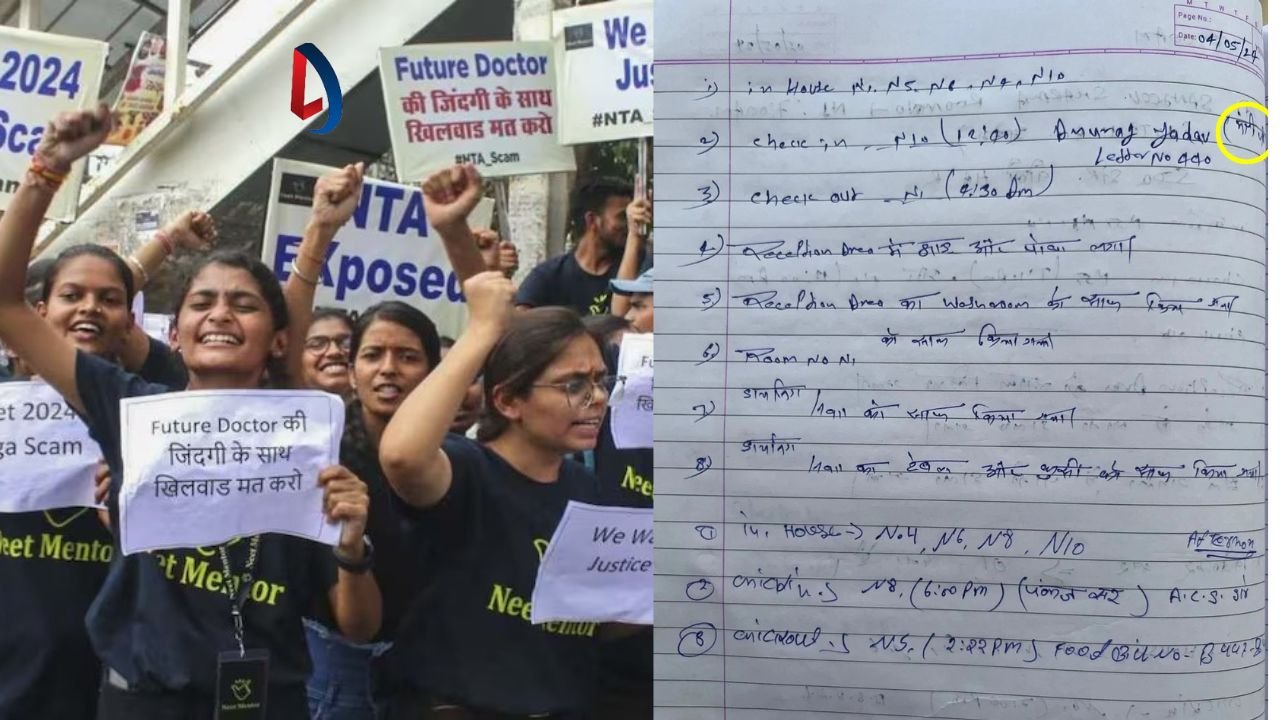 2024
We
Jus
#NTA
Future Doctor
की जिंदगी के साथ
खिलवाड मत करो
#NTA_Scam
NTA
EXposed
eet 2024
ga Scam
Future Doctor की
जिंदगी के साथ
खिलवाड मत करो
We Wa
Justice
Neet Mentor
eet Mentor
Neet Mentor
Neet Mentor
M T W T F S
Page No.:
Date: 04/05/24
1) in House N1, N5, N8, N9, N10
2) check in N10 (12:00) Anurag Yadav
Letter No 440
3) check out N1 (9:30 Am)
4) Reception Area में झाडू और पोछा लगा
5) Reception Area का Washroom को साफ किया गया
को साफ किया गया
6) Room No N1
डायनिंग
7) को साफ किया गया
डायनिंग
8) का टेबल और कुर्सी को साफ किया गया
① in House → N.4, N6, N8, N10 Afternoon
② N8. (6:00 PM) (पंकज सर) A.C.S.
③ N5. (2:22 PM) Food Bill No- B 447-